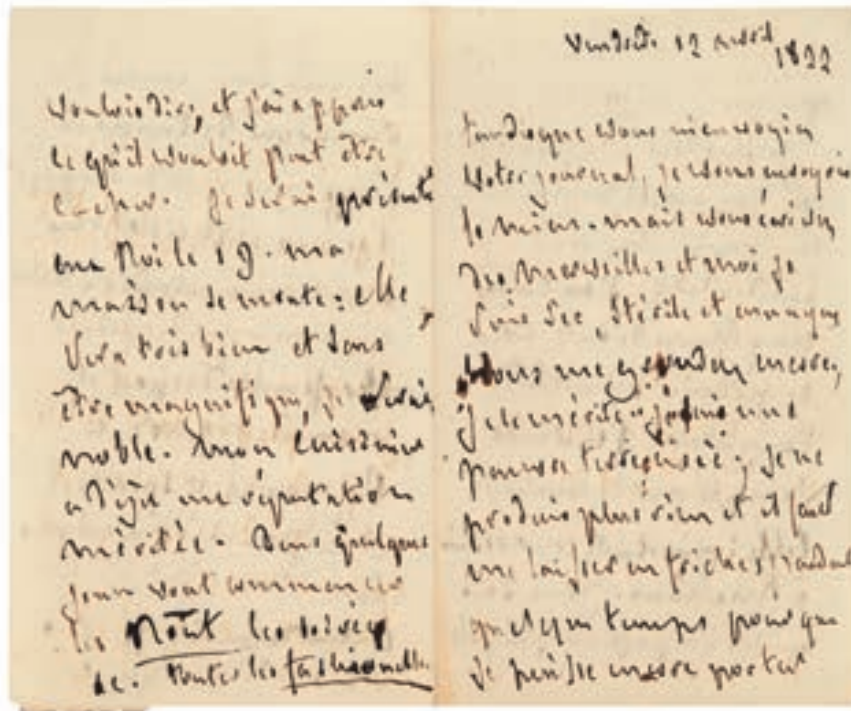 vouloit dire, et j'ai appris
ce qu'il vouloit peut être
cacher. Je serai présenté
au Roi le 19. ma
maison se monte : elle
sera très bien et sans
être magnifique, je serai
noble. mon cuisinier
a déjà une réputation
méritée. Dans quelques
jours vont commencer
les Rout les soirées
toutes les fashionables
Vendredi 12 avril 1822
tandis que vous m'envoyiez
votre journal, je vous envoyois
le mien. mais vous écrivez
des merveilles et moi je
suis sec, stérile et ennuyeux
vous me encore,
je le mérite. je suis une
pauvre terre usée ; je ne
produis plus rien et il faut
me laisser en friches pendant
quelque temps pour que
je puisse encore porter